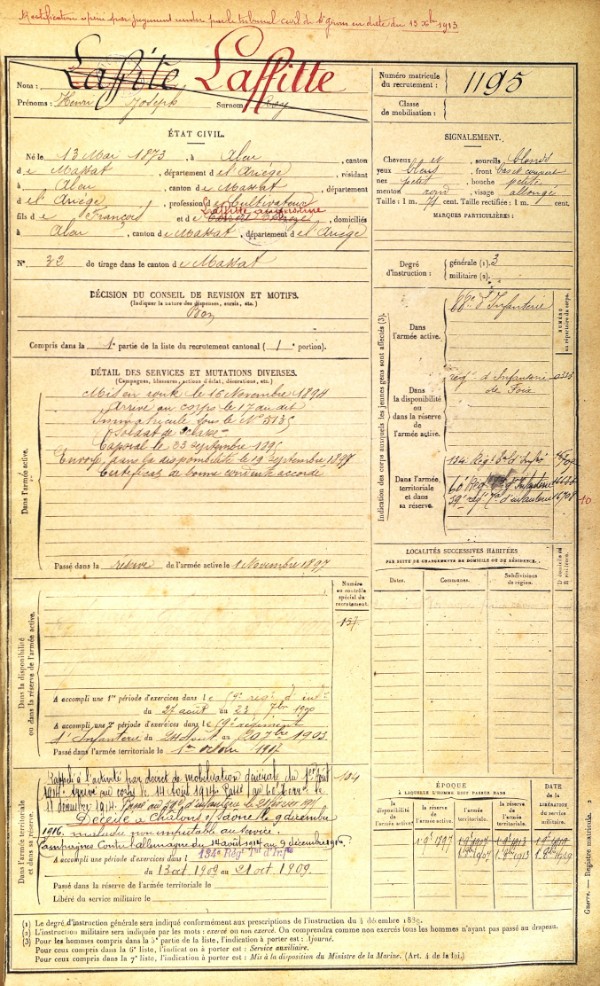 Rectification opérée par jugement rendu par le tribunal civil de St Girons en date du 15 Xbre 1913
Nom: Laffite Laffitte
Prénoms: Henri Joseph Surnom:
ÉTAT CIVIL.
Né le 13 Mai 1873, à Aleu, canton
de Massat, département d el'Ariège, résidant
à Aleu, canton de Massat, département
d el'Ariège, profession de Cultivateur
Laffitte Augustine
fils de François et de domiciliés
à Aleu, canton de Massat, département d el'Ariège
N° 32 de tirage dans le canton de Massat
DÉCISION DU CONSEIL DE REVISION ET MOTIFS.
(Indiquer la nature des dispenses, sursis, etc.)
Bon
Compris dans la 1e partie de la liste du recrutement cantonal ( 1e portion).
DÉTAIL DES SERVICES ET MUTATIONS DIVERSES.
(Campagnes, blessures, actions d'éclat, décorations, etc.)
Dans l'armée active.
Mis en route le 16 Novembre 1894
Arrivé au corps le 17 au dit
Immatriculé sous le N° 5135
Soldat de 2e classe
Caporal le 23 septembre 1895
Envoyé dans la disponibilité le 19 septembre 1897
Certificat de bonne conduite accordé
Passé dans la réserve de l'armée active le 1 Novembre 1897
Numéro au contrôle spécial du recrutement.
Dans la disponibilité ou dans la réserve de l'armée active.
A accompli une 1re période d'exercices dans l e 59e régt d'inf
du 27 août au 23 7bre 1900
A accompli une 2e période d'exercices dans l e 59e régiment
d'Infanterie du 24 Août au 20 7bre 1903.
Passé dans l'armée territoriale le 1er octobre 1907
Dans l'armée territoriale et dans sa réserve.
Rappelé à l'activité par décret de mobilisation générale du 1er Août 134
1914. Arrivé au corps le 14 Août 1914. Passé au 60e Terr le
11 décembre 1914. Passé au 59e d'infanterie le
Décédé à Chalons s/ Saône le 9 décembre
1916. maladie non imputable au service.
Campagnes Contre l'allemagne du 14 août 1914 au 9 décembre 1916.
A accompli une période d'exercices dans l 134e Régt Tal d'Infie
du 13 oct. 1909 au 21 oct. 1909.
Passé dans la réserve de l'armée territoriale le
Libéré du service militaire le
Numéro matricule du recrutement: 1195
Classe de mobilisation:
SIGNALEMENT.
Cheveux et sourcils blonds
yeux bleus front bas et
nez petit, bouche petite
menton rond visage allongé
Taille: 1 m. 71 cent. Taille rectifiée: 1 m. cent.
MARQUES PARTICULIÈRES:
Degré d'instruction: générale (1). 3
militaire (2).
Indication des corps auxquels les jeunes gens sont affectés (3).
NUMÉRO au répertoire du corps.
Dans l'armée active. d'Infanterie
Dans la disponibilité ou dans la réserve de l'armée active. Régt d'Infanterie
de Foix
Dans l'armée territoriale et dans sa réserve. 134 Régt Tal d'Infie
60e Régt d'Infanterie
59e régt d'infanterie
10
LOCALITÉS SUCCESSIVES HABITÉES
PAR SUITE DE CHANGEMENTS DE DOMICILE OU DE RÉSIDENCE.
Dates. Communes. Subdivisions de région. D domicile ou R résidence.
ÉPOQUE
À LAQUELLE L'HOMME DOIT PASSER DANS
la disponibilité de l'armée active. la réserve de l'armée active. l'armée territoriale. la réserve de l'armée territoriale. DATE DE LA LIBÉRATION DU service militaire.
Guerre. — Registre matricule.
(1) Le degré d'instruction générale sera indiqué conformément aux prescriptions de l'instruction du 4 décembre 1889.
(2) L'instruction militaire sera indiquée par les mots: exercé ou non exercé. On comprendra comme non exercés tous les hommes n'ayant pas passé au drapeau.
(3) Pour les hommes compris dans la 5e partie de la liste, l'indication à porter est: Ajourné.
Pour ceux compris dans la 6e liste, l'indication à porter est: Service auxiliaire.
Pour ceux compris dans la 7e liste, l'indication à porter est: Mis à la disposition du Ministre de la Marine. (Art. 4 de la loi.)